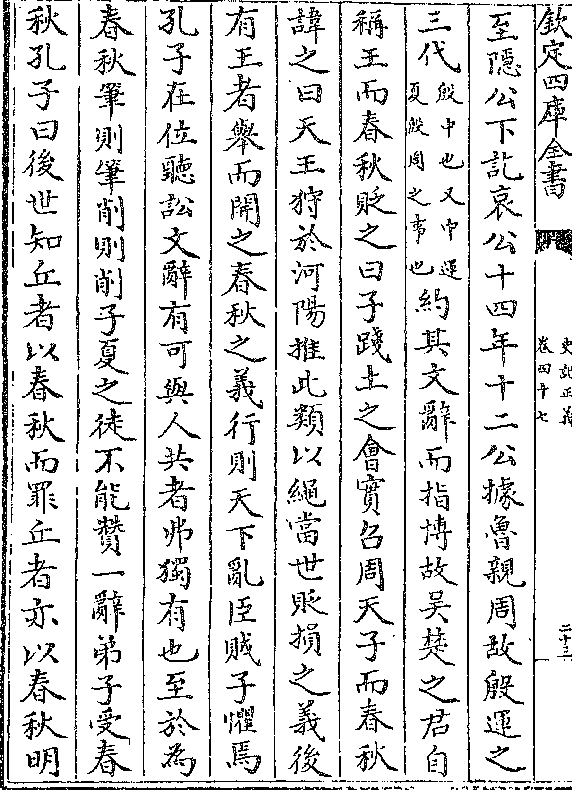 欽定四庫全書
史記正義
卷四十七
二十三
至隱公下訖哀公十四年十二公據魯親周故殷運之
三代殷中也又中運夏殷周之事也約其文辭而指博故吳楚之君自
稱王而春秋貶之曰子踐土之會實召周天子而春秋
諱之曰天王狩於河陽推此類以繩當世貶損之義後
有王者舉而開之春秋之義行則天下亂臣賊子懼焉
孔子在位聽訟文辭有可與人共者弗獨有也至於為
春秋筆則筆削則削子夏之徒不能贊一辭弟子受春
秋孔子曰後世知丘者以春秋而罪丘者亦以春秋明